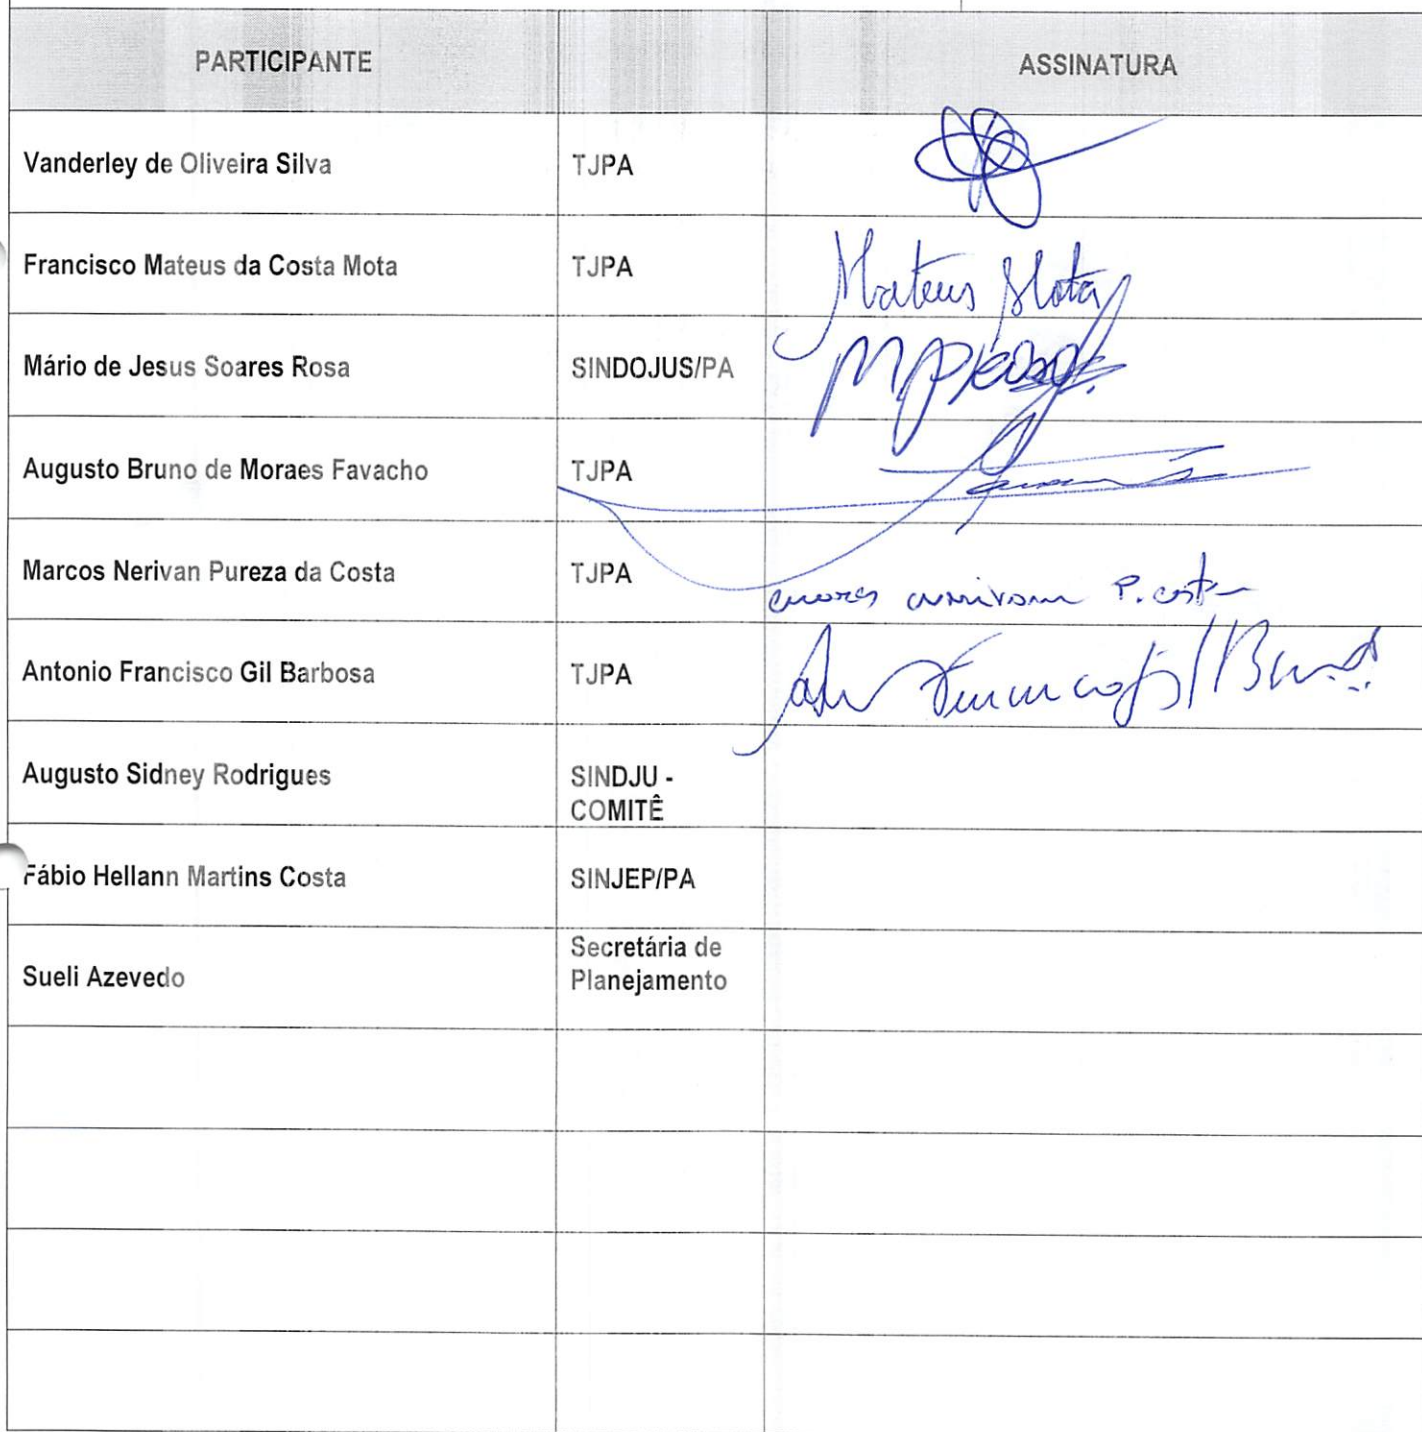 PARTICIPANTE ASSINATURA
Vanderley de Oliveira Silva TJPA
Francisco Mateus da Costa Mota TJPA Mateus Mota
Mário de Jesus Soares Rosa SINDOJUS/PA
Augusto Bruno de Moraes Favacho TJPA
Marcos Nerivan Pureza da Costa TJPA P. Costa
Antonio Francisco Gil Barbosa TJPA
Augusto Sidney Rodrigues SINDJU -
COMITÊ
Fábio Hellann Martins Costa SINJEP/PA
Sueli Azevedo Secretária de
Planejamento